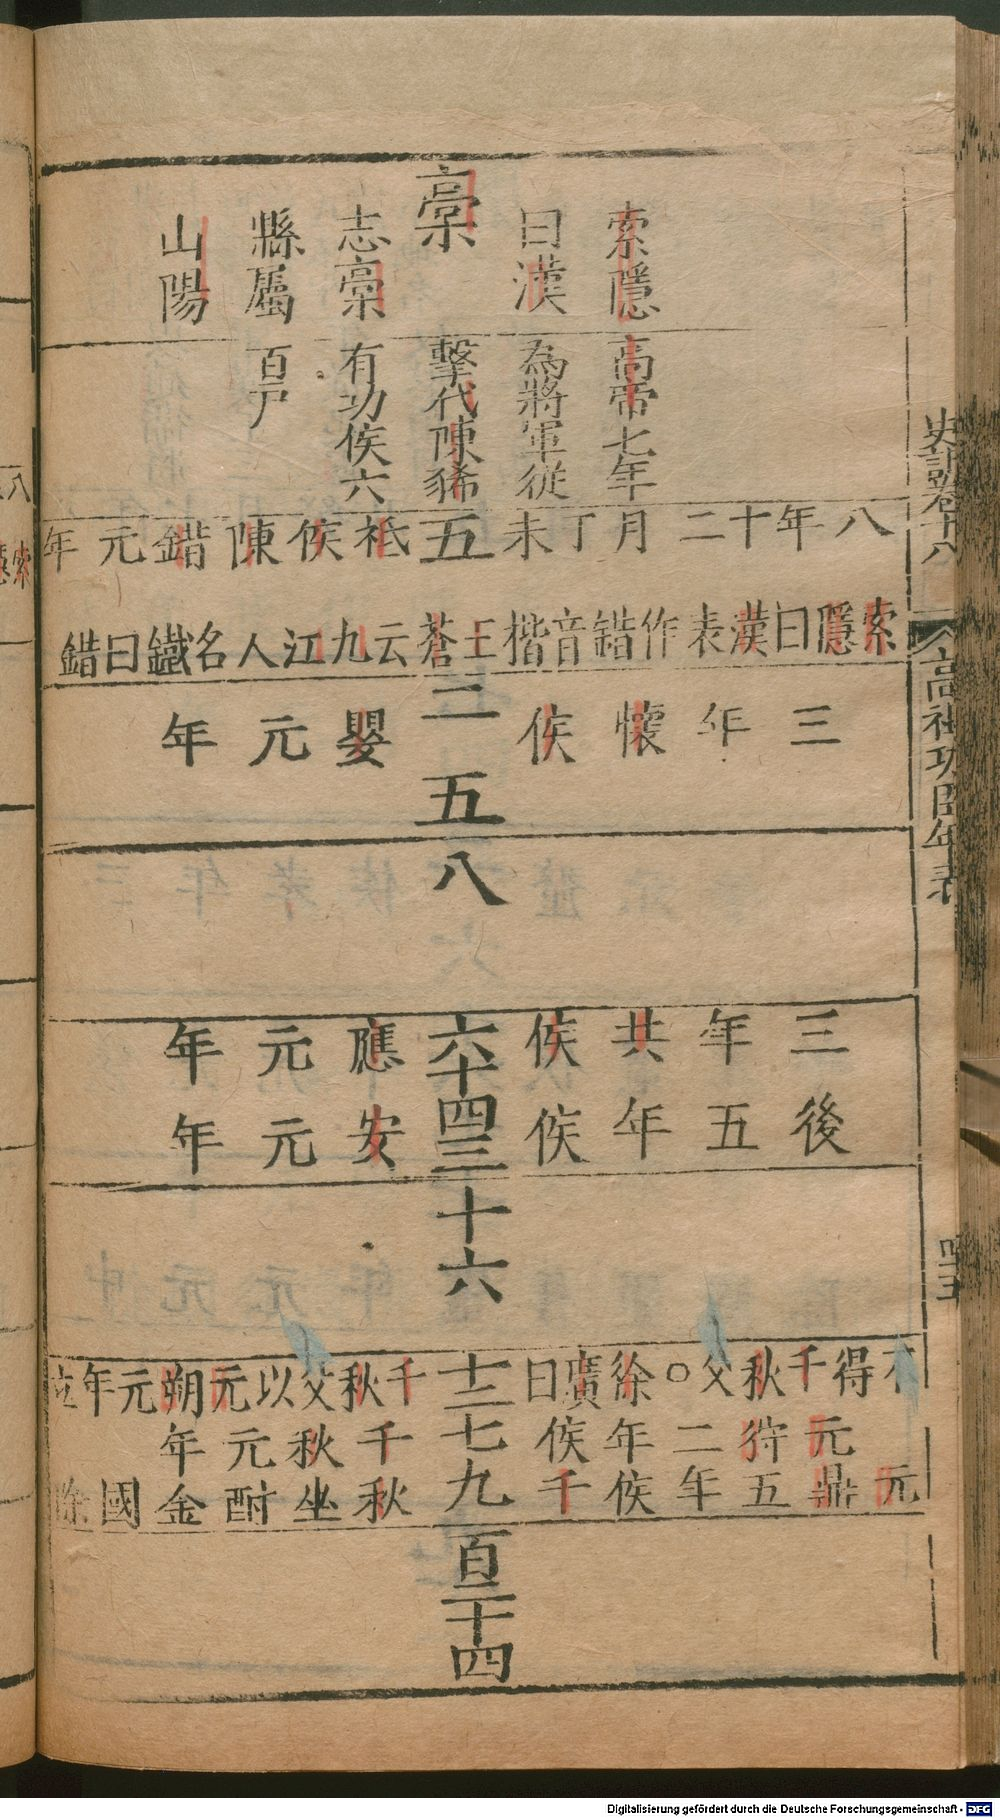 索隱
曰漢
槀
志槀
縣屬
山陽
高帝七年
為將軍從
擊代陳豨
有功侯六
百戶
八年十二月丁未 五 祗侯陳錯元年
索隱曰漢表作錯音楷王蒼云九江人名鐵曰錯
三年懷侯 二 嬰元年
五
八
三年共侯 六 應元年
十四
後五年侯 三 安元年
十六
不得千秋父○徐廣曰 十二 千秋父以元朔元年立
元狩二年侯 七 千秋元年
元鼎五年侯千 九 秋坐酎金國除
百二十四
史記卷十八
高祖功臣年表
Digitalisierung gefördert durch die Deutsche Forschungsgemeinschaft - DFG